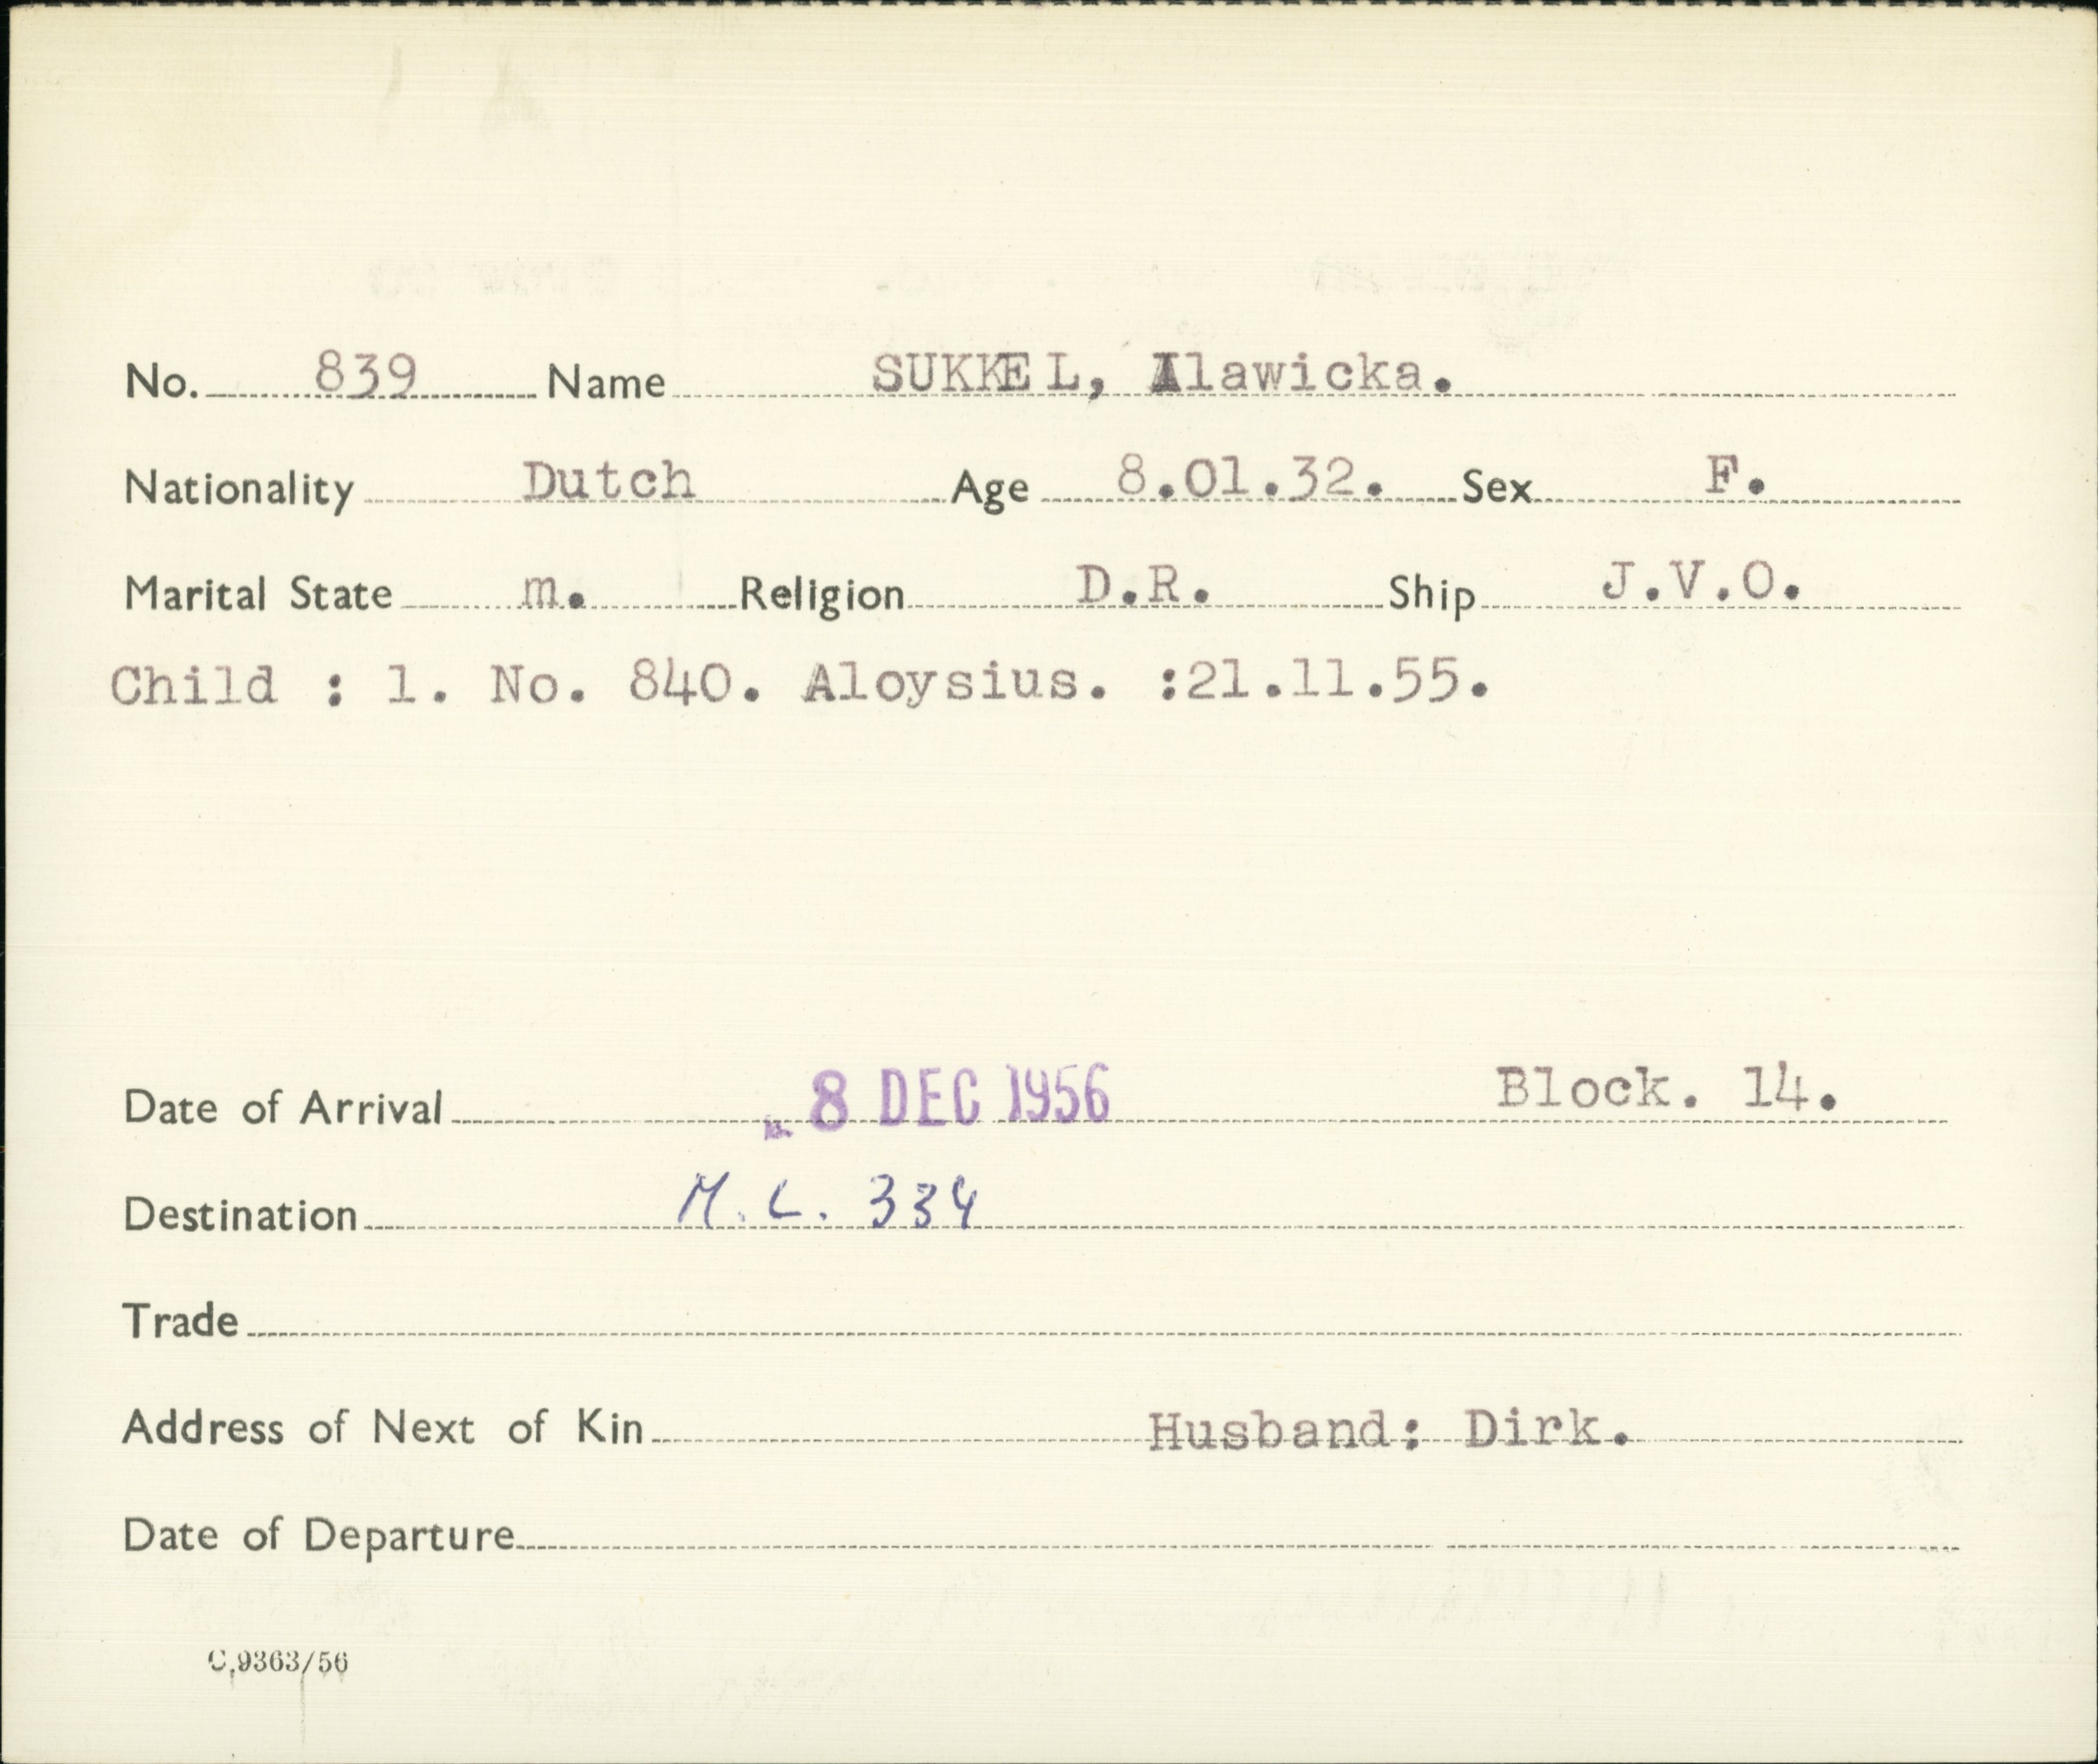 No. 839 Name SUKKEL, Alawicka.
Nationality Dutch Age 8.01.32. Sex F.
Marital State m. Religion D.R. Ship J.V.O.
Child : 1. No. 840. Aloysius. :21.11.55.
Date of Arrival - 8 DEC 1956 Block. 14.
Destination M.C. 334
Trade
Address of Next of Kin Husband: Dirk.
Date of Departure
C.9363/56